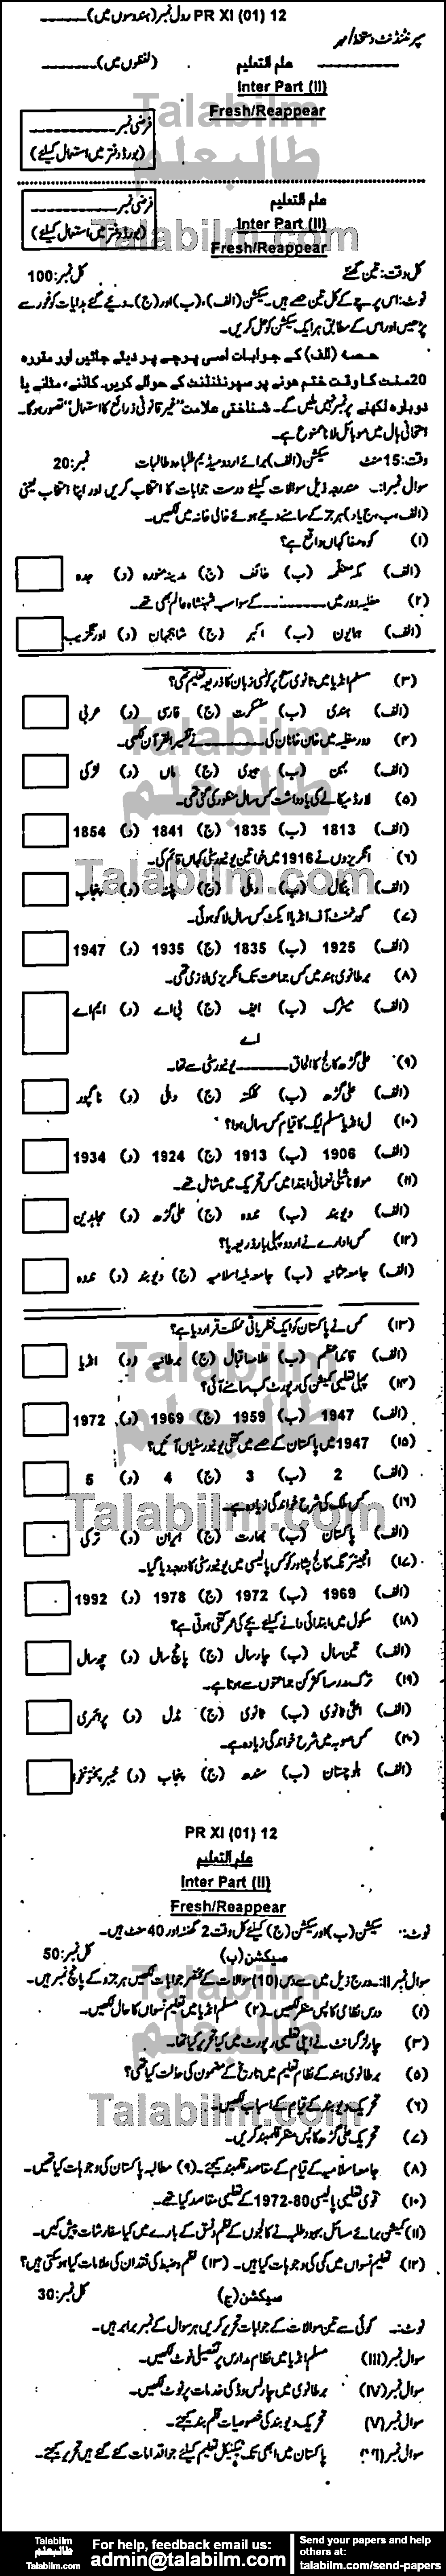 PR XI (01) 12 رول نمبر (ہندسوں میں)ـــــــ
سپرنٹنڈنٹ دستخط/مہر
علم التعلیم (لفظوں میں)ـــــــ
Inter Part (II)
Fresh/Reappear
فرضی نمبر ـــــــ
(بورڈ دفتر میں استعمال کیلئے)
علم التعلیم
Inter Part (II)
Fresh/Reappear
فرضی نمبر ـــــــ
(بورڈ دفتر میں استعمال کیلئے)
کل وقت: تین گھنٹے کل نمبر: 100
نوٹ: اس پرچے کے کل تین حصے ہیں۔ سیکشن (الف)، (ب) اور (ج)۔ دیئے گئے ہدایات کو غور سے
پڑھیں اور اس کے مطابق ہر ایک سیکشن کو حل کریں۔
حصہ (الف) کے جوابات اسی پرچے پر دیئے جائیں اور مقررہ
20 منٹ کا وقت ختم ہونے پر سپرنٹنڈنٹ کے حوالے کریں۔ کاٹنے، مٹانے یا
دوبارہ لکھنے پر نمبر نہیں ملیں گے۔ شناختی علامت "غیر قانونی ذرائع کا استعمال" تصور ہوگا۔
امتحانی ہال میں موبائل لانا ممنوع ہے۔
وقت: 15 منٹ سیکشن (الف) برائے اردو میڈیم طلباء و طالبات نمبر: 20
سوال نمبر I:۔ مندرجہ ذیل سوالات کیلئے درست جوابات کا انتخاب کریں اور اپنا انتخاب یعنی
(الف، ب، ج یا د) ہر جز کے سامنے دیئے ہوئے خالی خانہ میں لکھیں۔
(۱) کوہ صفا کہاں واقع ہے؟
(الف) مکہ معظمہ (ب) طائف (ج) مدینہ منورہ (د) جدہ
(۲) مغلیہ دور میں ـــــــ کے سوا سب شہنشاہ عالم بھی تھے۔
(الف) ہمایوں (ب) اکبر (ج) شاہجہان (د) اورنگزیب
(۳) مسلم انڈیا میں ثانوی سطح پر کونسی زبان کا ذریعہ تعلیم تھی؟
(الف) ہندی (ب) سنسکرت (ج) فارسی (د) عربی
(۴) دور مغلیہ میں خان خاناں کی ـــــــ نے تفسیر القرآن لکھی۔
(الف) بہن (ب) بیوی (ج) ماں (د) لڑکی
(۵) لارڈ میکالے کی یادداشت کس سال منظور کی گئی تھی۔
(الف) 1813 (ب) 1835 (ج) 1841 (د) 1854
(۶) انگریزوں نے 1916 میں خواتین یونیورسٹی کہاں قائم کی۔
(الف) بنگال (ب) دہلی (ج) پٹنہ (د) پنجاب
(۷) گورنمنٹ آف انڈیا ایکٹ کس سال لاگو ہوئی۔
(الف) 1925 (ب) 1835 (ج) 1935 (د) 1947
(۸) برطانوی ہند میں کس جماعت تک انگریزی لازمی تھی۔
(الف) میٹرک (ب) ایف اے (ج) بی اے (د) ایم اے
(۹) علی گڑھ کالج کا الحاق ـــــــ یونیورسٹی سے تھا۔
(الف) علی گڑھ (ب) کلکتہ (ج) دہلی (د) ناگپور
(۱۰) ال انڈیا مسلم لیگ کا قیام کس سال ہوا؟
(الف) 1906 (ب) 1913 (ج) 1924 (د) 1934
(۱۱) مولانا شبلی نعمانی ابتدا میں کس تحریک میں شامل تھے۔
(الف) دیوبند (ب) ندوہ (ج) علی گڑھ (د) مجاہدین
(۱۲) کس ادارے نے اردو پہلی بار ذریعہ بنایا؟
(الف) جامعہ عثمانیہ (ب) جامعہ ملیہ اسلامیہ (ج) دیوبند (د) ندوہ
(۱۳) کس نے پاکستان کو ایک نظریاتی مملکت قرار دیا ہے؟
(الف) قائداعظم (ب) علامہ اقبال (ج) برطانیہ (د) انڈیا
(۱۴) پہلی تعلیمی کمیشن کی رپورٹ کب سامنے آئی؟
(الف) 1947 (ب) 1959 (ج) 1969 (د) 1972
(۱۵) 1947 میں پاکستان کے حصے میں کتنی یونیورسٹیاں آئیں؟
(الف) 2 (ب) 3 (ج) 4 (د) 5
(۱۶) کس ملک کی شرح خواندگی زیادہ ہے۔
(الف) پاکستان (ب) بھارت (ج) ایران (د) ترکی
(۱۷) انجینئرنگ کالج پشاور کو کس پالیسی میں یونیورسٹی کا درجہ دیا گیا۔
(الف) 1969 (ب) 1972 (ج) 1978 (د) 1992
(۱۸) سکول میں ابتدائی داخلے کیلئے بچے کی عمر کتنی ہوتی ہے؟
(الف) تین سال (ب) چار سال (ج) پانچ سال (د) چھ سال
(۱۹) ترک مدرسہ اکثر کن جماعتوں سے ہوتا ہے۔
(الف) اعلیٰ ثانوی (ب) ثانوی (ج) مڈل (د) پرائمری
(۲۰) کس صوبہ میں شرح خواندگی زیادہ ہے۔
(الف) بلوچستان (ب) سندھ (ج) پنجاب (د) خیبر پختونخوا
PR XI (01) 12
علم التعلیم
Inter Part (II)
Fresh/Reappear
نوٹ:۔ سیکشن (ب) اور سیکشن (ج) کیلئے کل وقت 2 گھنٹہ اور 40 منٹ ہیں۔
سیکشن (ب) کل نمبر: 50
سوال نمبر II:۔ درج ذیل میں سے دس (10) سوالات کے مختصر جوابات لکھیں ہر جزو کے پانچ نمبر ہیں۔
(۱) درس نظامی کا پس منظر لکھیں۔ (۲) مسلم انڈیا میں تعلیم نسواں کا حال لکھیں۔
(۳) چارلز گرانٹ نے اپنی تعلیمی رپورٹ میں کیا تحریر کیا تھا۔
(۵) برطانوی ہند کے نظام تعلیم میں تاریخ کے مضمون کی حالت کیا تھی؟
(۶) تحریک دیوبند کے قیام کے اسباب لکھیں۔
(۷) تحریک علی گڑھ کا پس منظر قلمبند کریں۔
(۸) جامعہ اسلامیہ کے قیام کے مقاصد قلمبند کیجئے۔ (۹) مطالبہ پاکستان کی وجوہات کیا تھیں۔
(۱۰) قومی تعلیمی پالیسی 1972-80 کے تعلیمی مقاصد کیا تھے۔
(۱۱) کمیشن برائے مسائل بہبود طلبہ نے کالجوں کے نظم و نسق کے بارے میں کیا سفارشات پیش کیں۔
(۱۲) تعلیم نسواں میں کمی کی وجوہات کیا ہیں۔ (۱۳) نظم و ضبط کی فقدان کی علامات کیا ہو سکتی ہیں؟
سیکشن (ج) کل نمبر: 30
نوٹ:۔ کوئی سے تین سوالات کے جوابات تحریر کریں ہر سوال کے نمبر برابر ہیں۔
سوال نمبر (III) مسلم انڈیا میں نظام مدارس پر تفصیلی نوٹ لکھیں۔
سوال نمبر (IV) برطانوی میں چارلس وڈ کی خدمات پر نوٹ لکھیں۔
سوال نمبر (V) تحریک دیوبند کی خصوصیات قلم بند کیجئے۔
سوال نمبر پاکستان میں ابھی تک ٹیکنیکل تعلیم کیلئے جو اقدامات کئے گئے ہیں تحریر کیجئے۔
Talabilm
طالبعلم
Talabilm.com
Talabilm
طالبعلم
Talabilm.com
Talabilm
طالبعلم
Talabilm.com
Talabilm
طالبعلم
Talabilm.com
Talabilm
طالبعلم
Talabilm.com
For help, feedback email us:
admin@talabilm.com
Send your papers and help
others at:
talabilm.com/send-papers